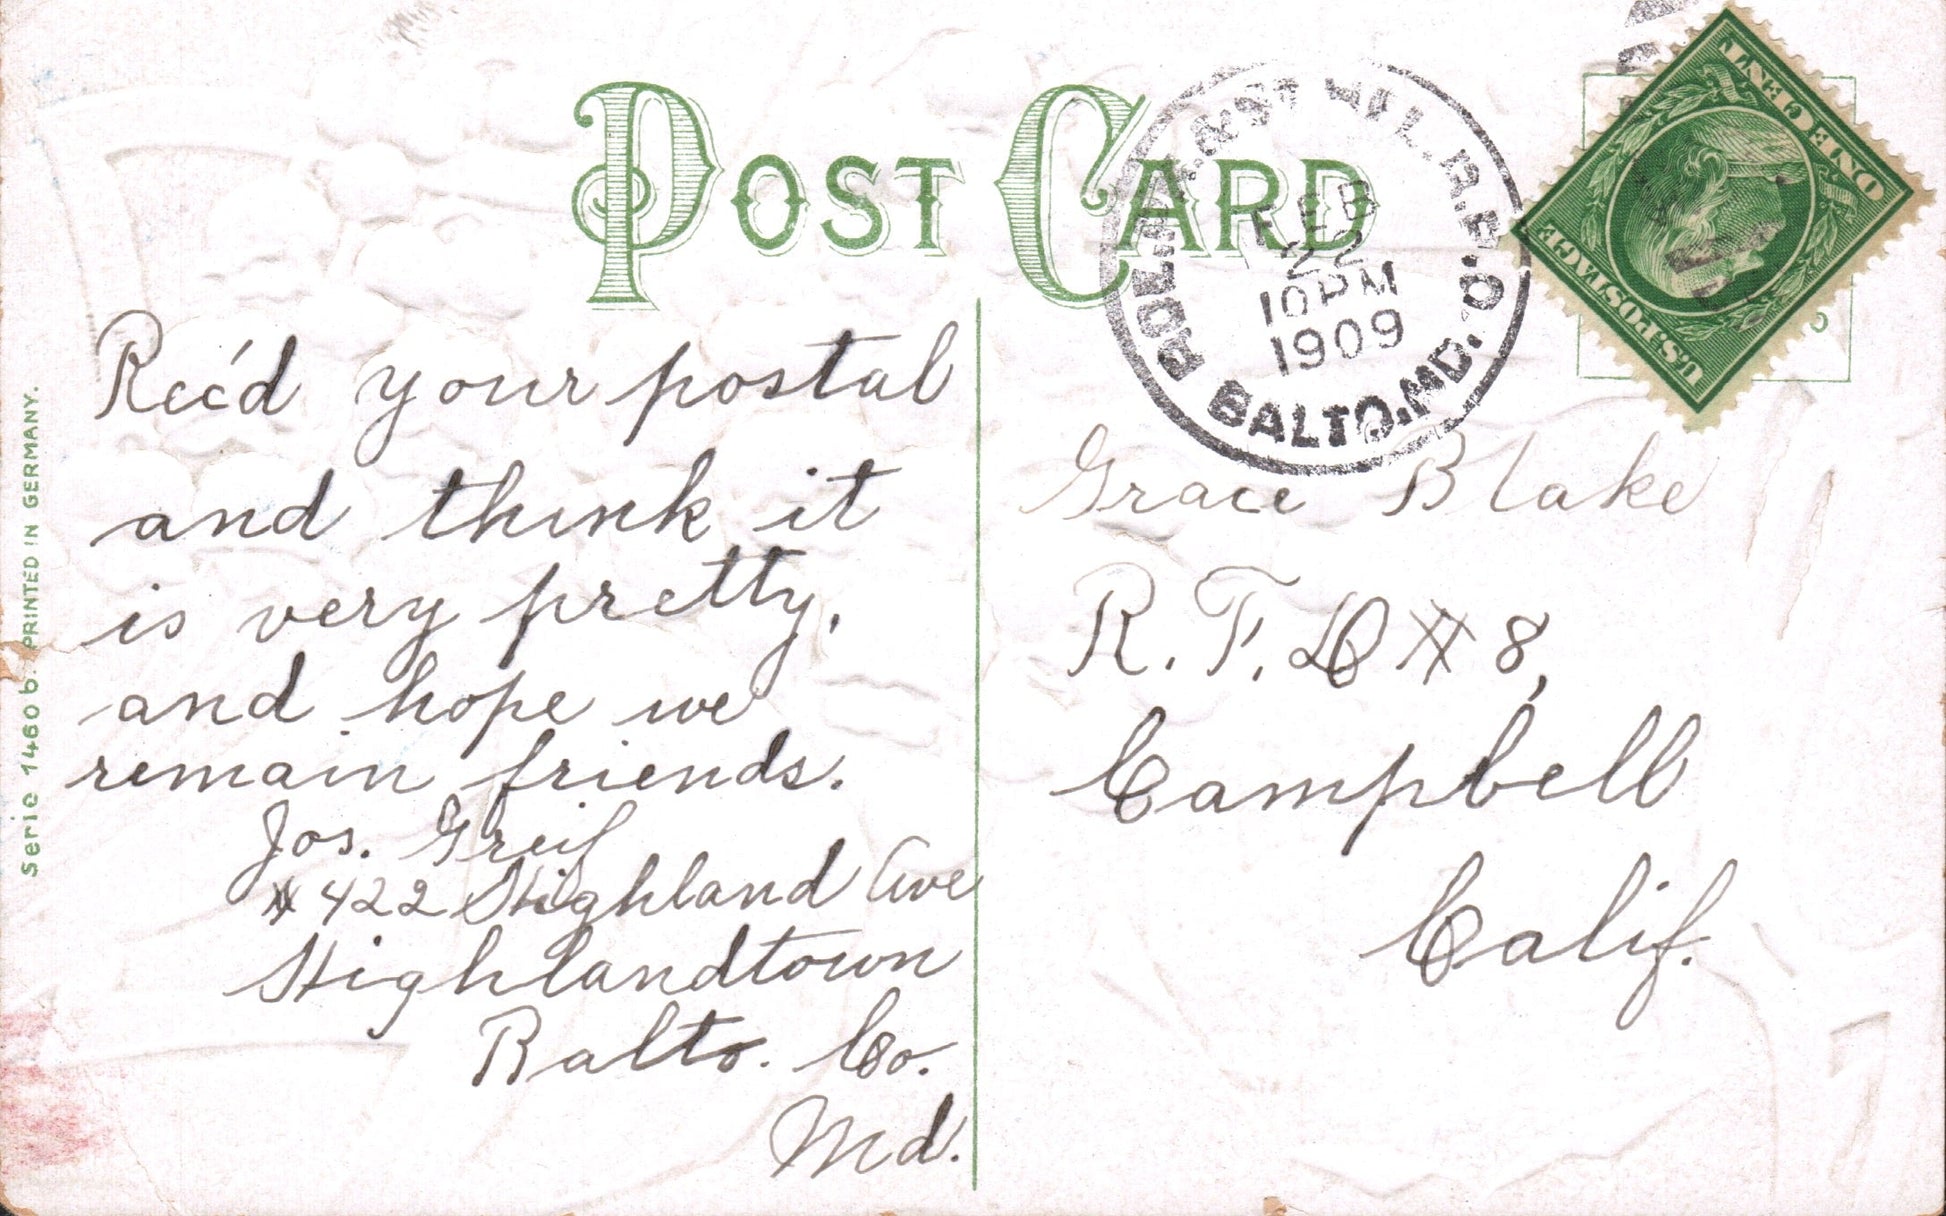 POST CARD
FEB
22
10 PM
1909
BALTO., MD.
R.P.O.
ONE CENT
U.S. POSTAGE
Rec'd your postal
and think it
is very pretty,
and hope we
remain friends.
Jos. Greif
# 422 Highland Ave
Highlandtown
Balto. Co.
Md.
Grace Blake
R. F. D # 8,
Campbell
Calif.
Serie 1460 b. PRINTED IN GERMANY.